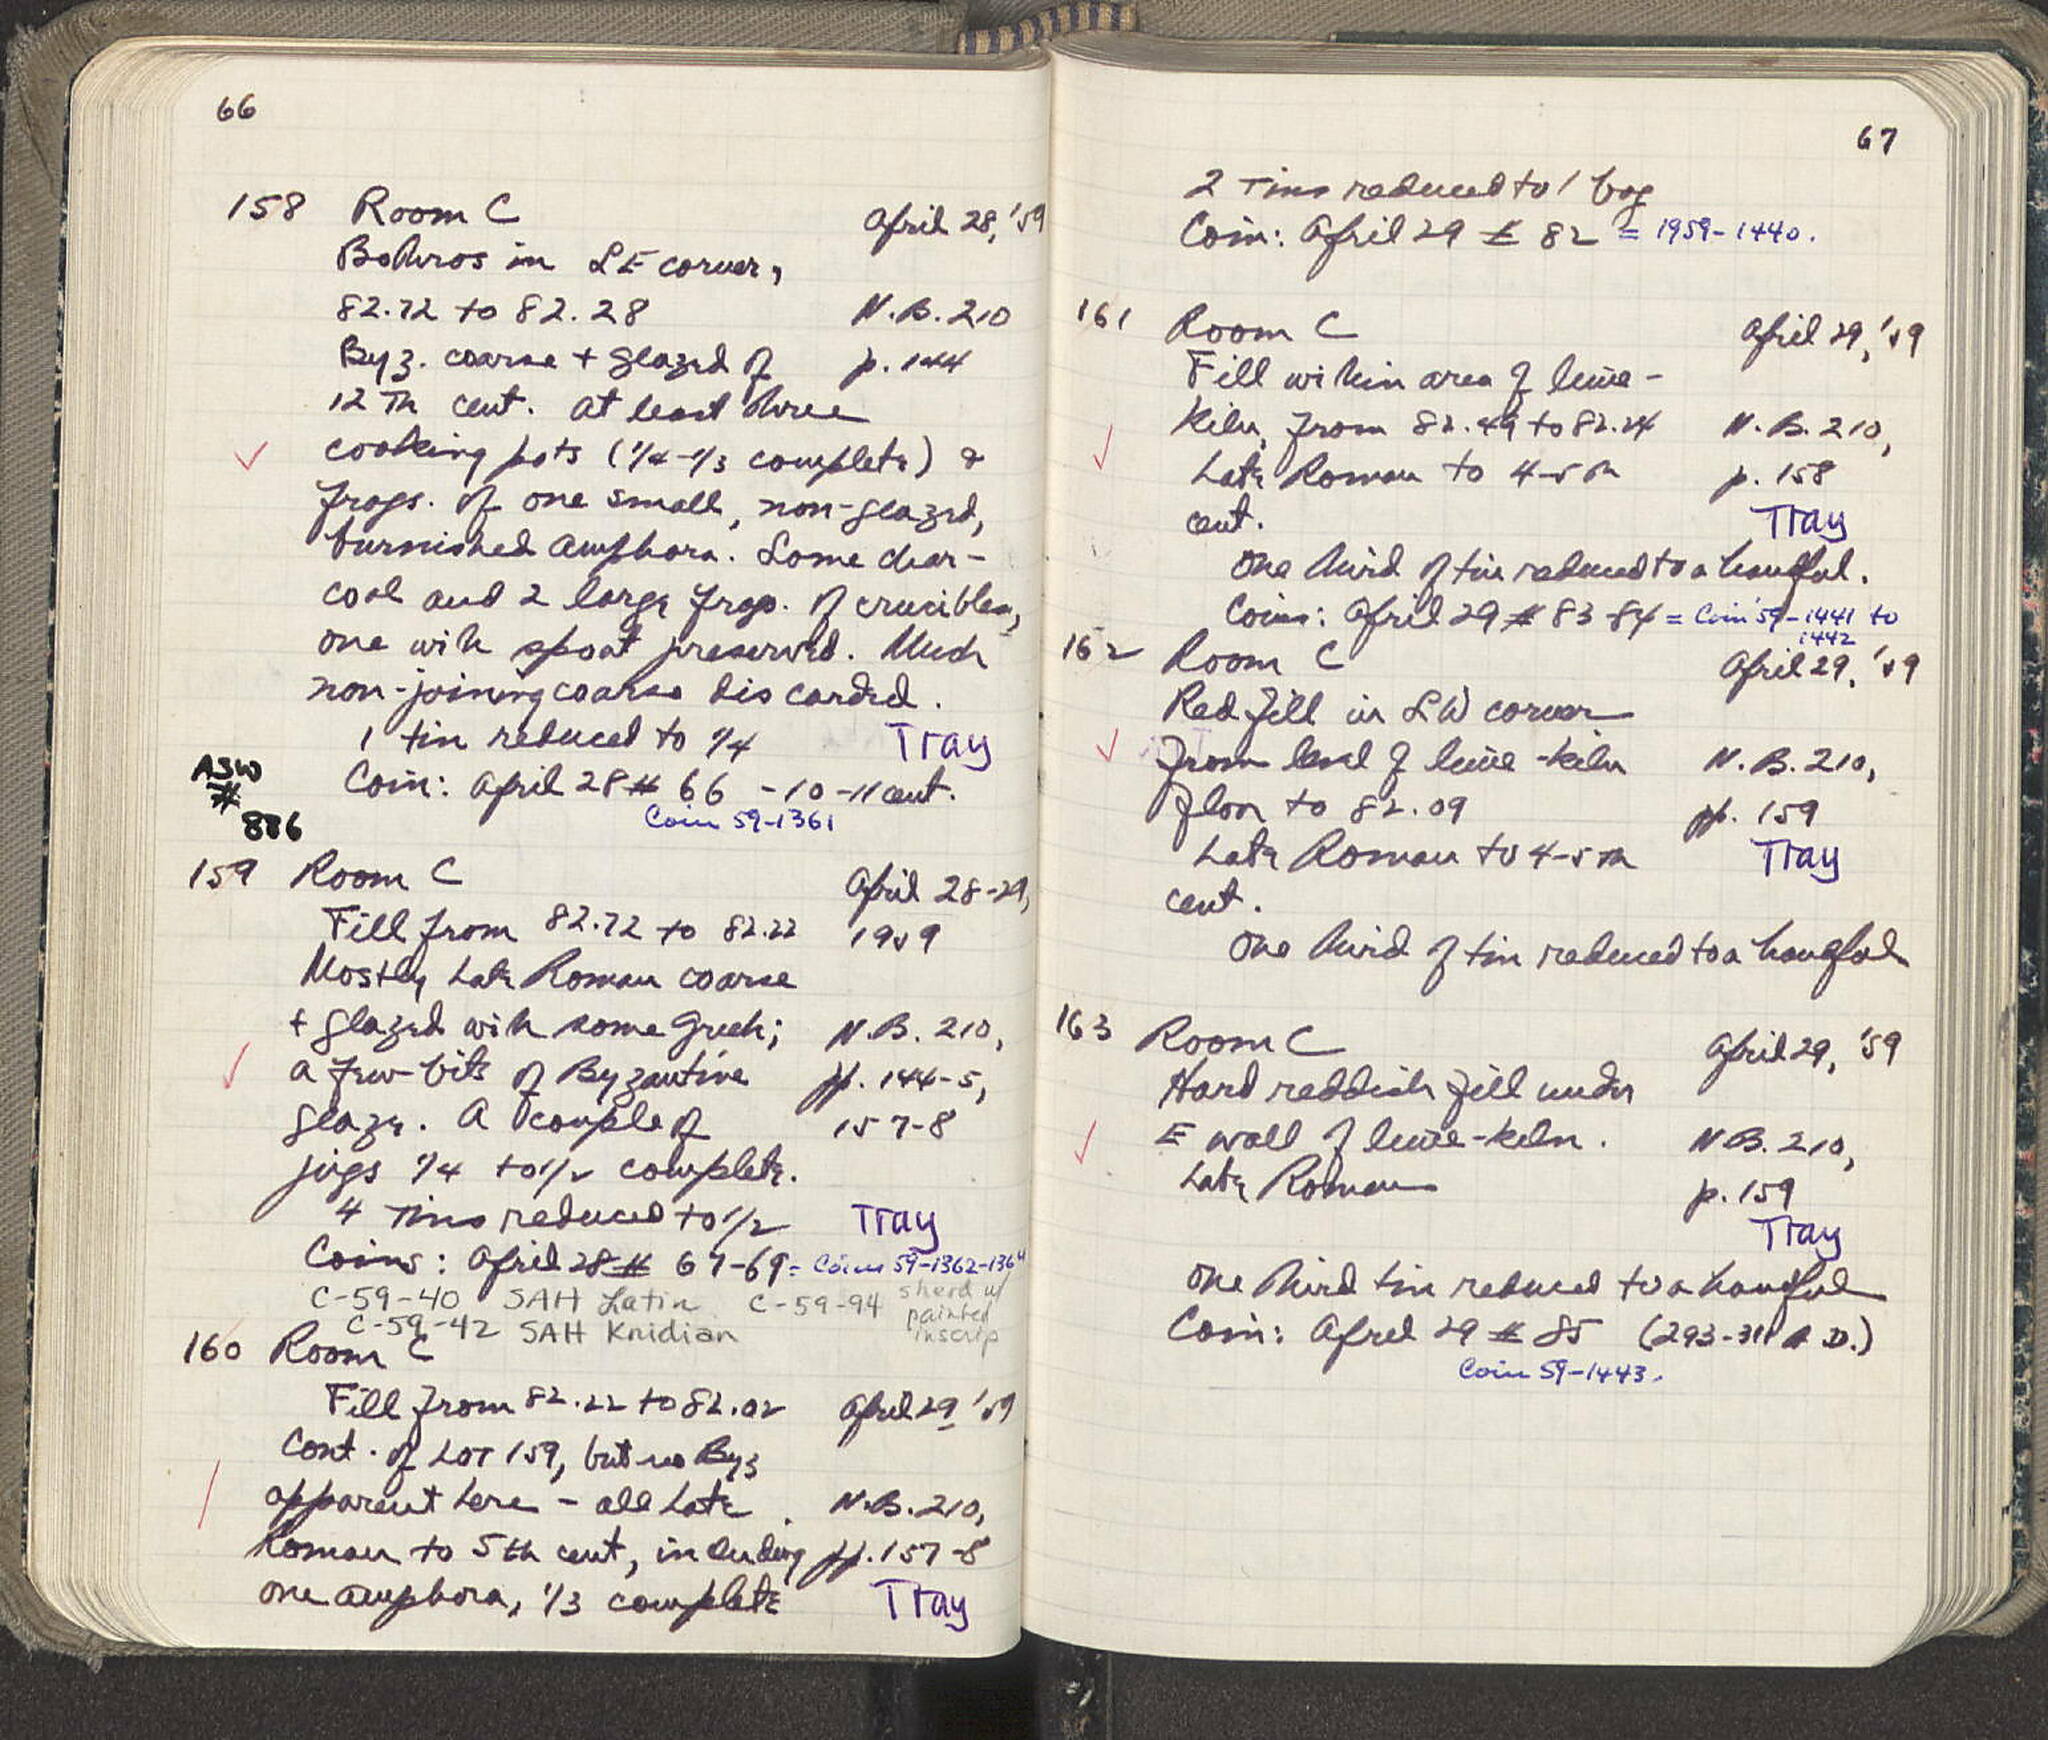 66
158 Room C April 28, '59
Bothros in SE corner,
82.72 to 82.28 N.B. 210
Byz. coarse + glazed of p. 144
12th cent. At least three
cooking pots (1/4-1/3 complete) &
frags. of one small, non-glazed,
burnished amphora. Some char-
coal and 2 large frags. of crucibles,
one with spout preserved. Much
non-joining coarse discarded.
1 tin reduced to 1/4 Tray
Coin: April 28 # 66 - 10-11 cent.
Coin 59-1361
ASW
#
886
159 Room C April 28-29,
Fill from 82.72 to 82.22 1959
Mostly Late Roman coarse
+ glazed with some Greek; N.B. 210,
a few bits of Byzantine pp. 144-5,
glaze. A couple of 157-8
jugs 1/4 to 1/2 complete.
4 Tins reduced to 1/2 Tray
Coins: April 28 # 67-69 = Coins 59-1362-1364
C-59-40 SAH Latin C-59-94 sherd w/
painted
inscrip
C-59-42 SAH Knidian
160 Room C
Fill from 82.22 to 82.02 April 29, '59
Cont. of Lot 159, but no Byz
apparent here - all Late N.B. 210,
Roman to 5th cent, including pp. 157-8
one amphora, 1/3 complete Tray
67
2 Tins reduced to 1 bag
Coin: April 29 # 82 = 1959-1440.
161 Room C April 29, '59
Fill within area of lime-
kiln, from 82.49 to 82.24 N.B. 210,
Late Roman to 4-5th p. 158
cent. Tray
One third of tin reduced to a handful.
Coins: April 29 # 83-84 = Coin '59-1441 to
1442
162 Room C April 29, '59
Red fill in SW corner
from level of lime-kiln N.B. 210,
floor to 82.09 pp. 159
Late Roman to 4-5th Tray
cent.
One third of tin reduced to a handful
163 Room C April 29, '59
Hard reddish fill under
E wall of lime-kiln. N.B. 210,
Late Roman p. 159
Tray
One third tin reduced to a handful
Coin: April 29 # 85 (293-311 A.D.)
Coin 59-1443.